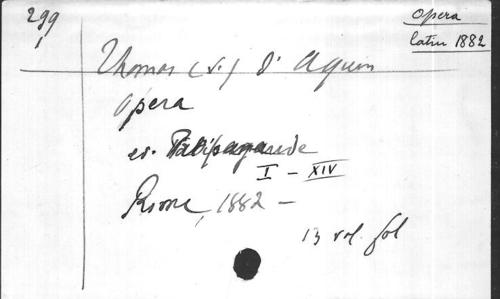 299
1
Opera
latin 1882
Thomas (s.) d'Aquin
Opera
ed. Propagande
I - XIV
Rome, 1882 -
13 vol. fol